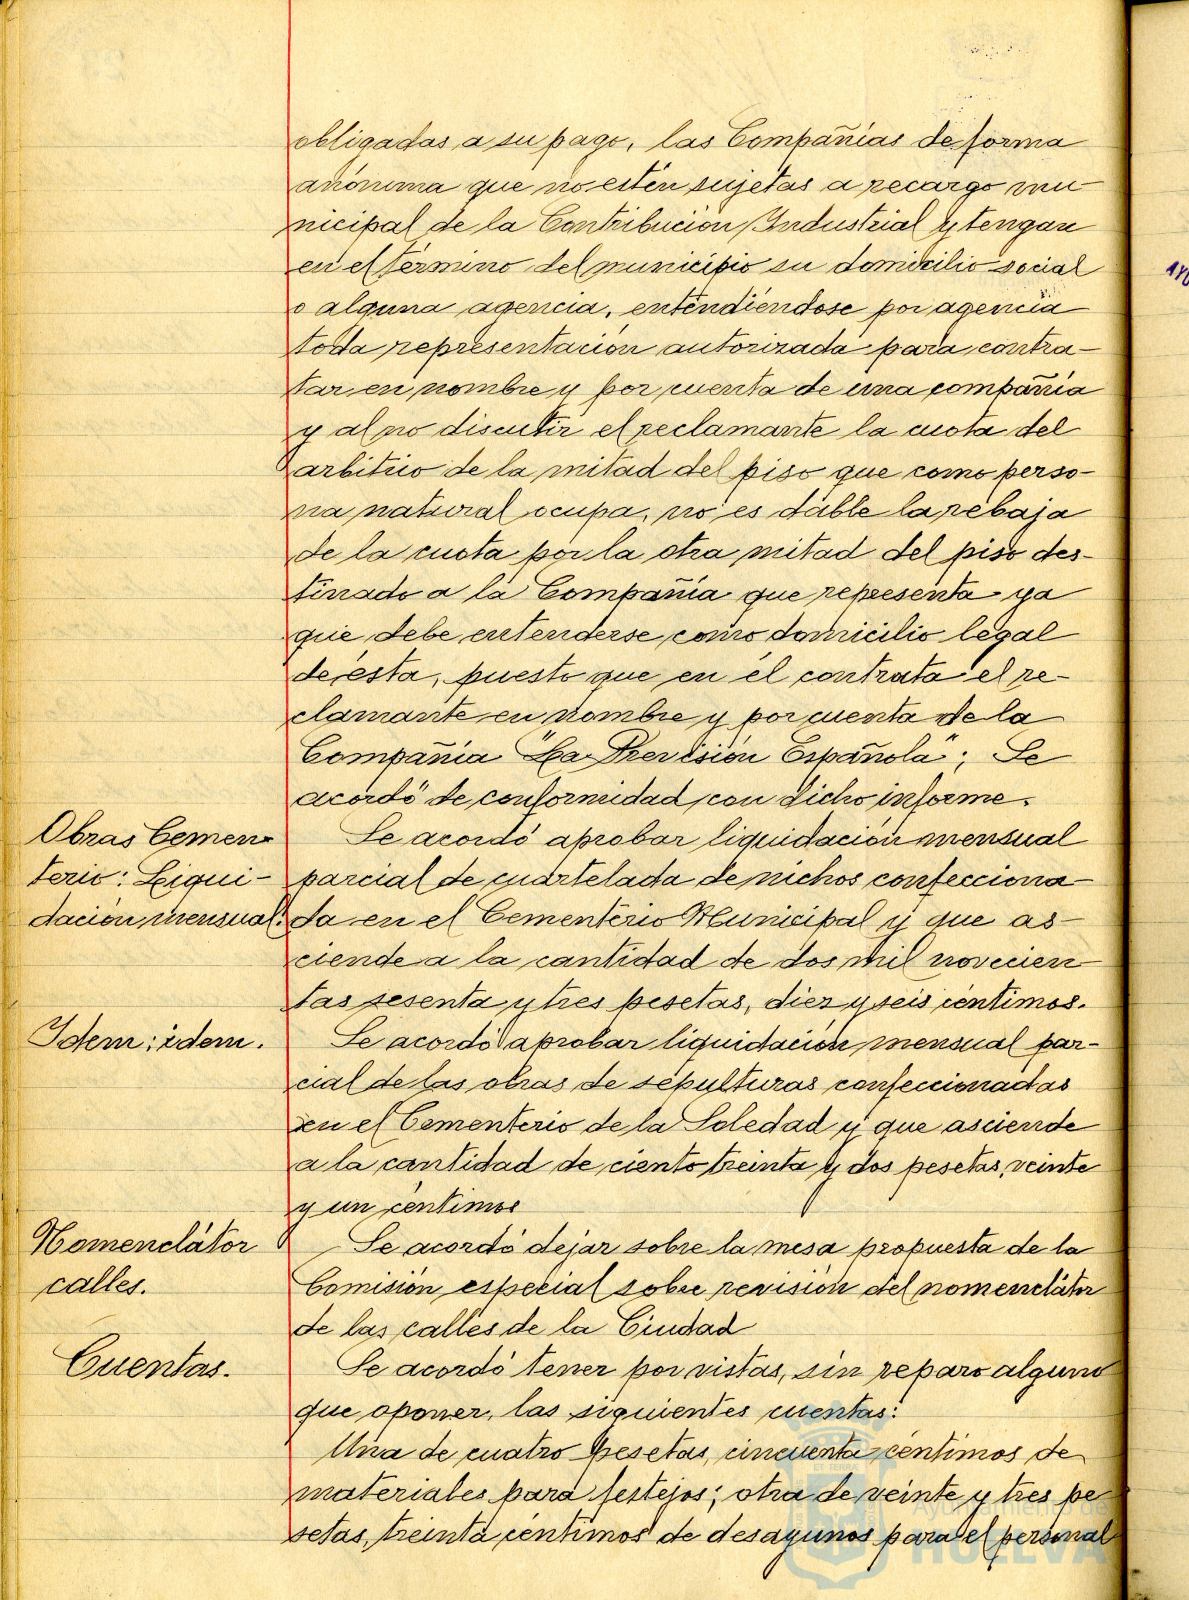 obligadas a su pago, las Compañías de forma
anónima que no estén sujetas a recargo mu-
nicipal de la Contribución Industrial y tengan
en el término del municipio su domicilio social
o alguna agencia, entendiéndose por agencia
toda representación autorizada para contra-
tar en nombre y por cuenta de una compañía
y al no discutir el reclamante la cuota del
arbitrio de la mitad del piso que como perso-
na natural ocupa, no es dable la rebaja
de la cuota por la otra mitad del piso des-
tinado a la Compañía que representa ya
que debe entenderse como domicilio legal
de ésta, puesto que en él contrata el re-
clamante en nombre y por cuenta de la
Compañía "La Previsión Española"; Se
acordó de conformidad con dicho informe.
Obras Cemen-
terio: Liqui-
dación mensual.
Se acordó aprobar liquidación mensual
parcial de cuartelada de nichos confecciona-
da en el Cementerio Municipal y que as-
ciende a la cantidad de dos mil novecien-
tas sesenta y tres pesetas, diez y seis céntimos.
Idem: idem.
Se acordó aprobar liquidación mensual par-
cial de las obras de sepulturas confeccionadas
en el Cementerio de la Soledad y que asciende
a la cantidad de ciento treinta y dos pesetas, veinte
y un céntimos
Nomenclátor
calles.
Se acordó dejar sobre la mesa propuesta de la
Comisión especial sobre revisión del nomenclátor
de las calles de la Ciudad
Cuentas.
Se acordó tener por vistas, sin reparo alguno
que oponer, las siguientes cuentas:
Una de cuatro pesetas, cincuenta céntimos de
materiales para festejos; otra de veinte y tres pe-
setas, treinta céntimos de desayunos para el personal
Ayuntamiento de
HUELVA